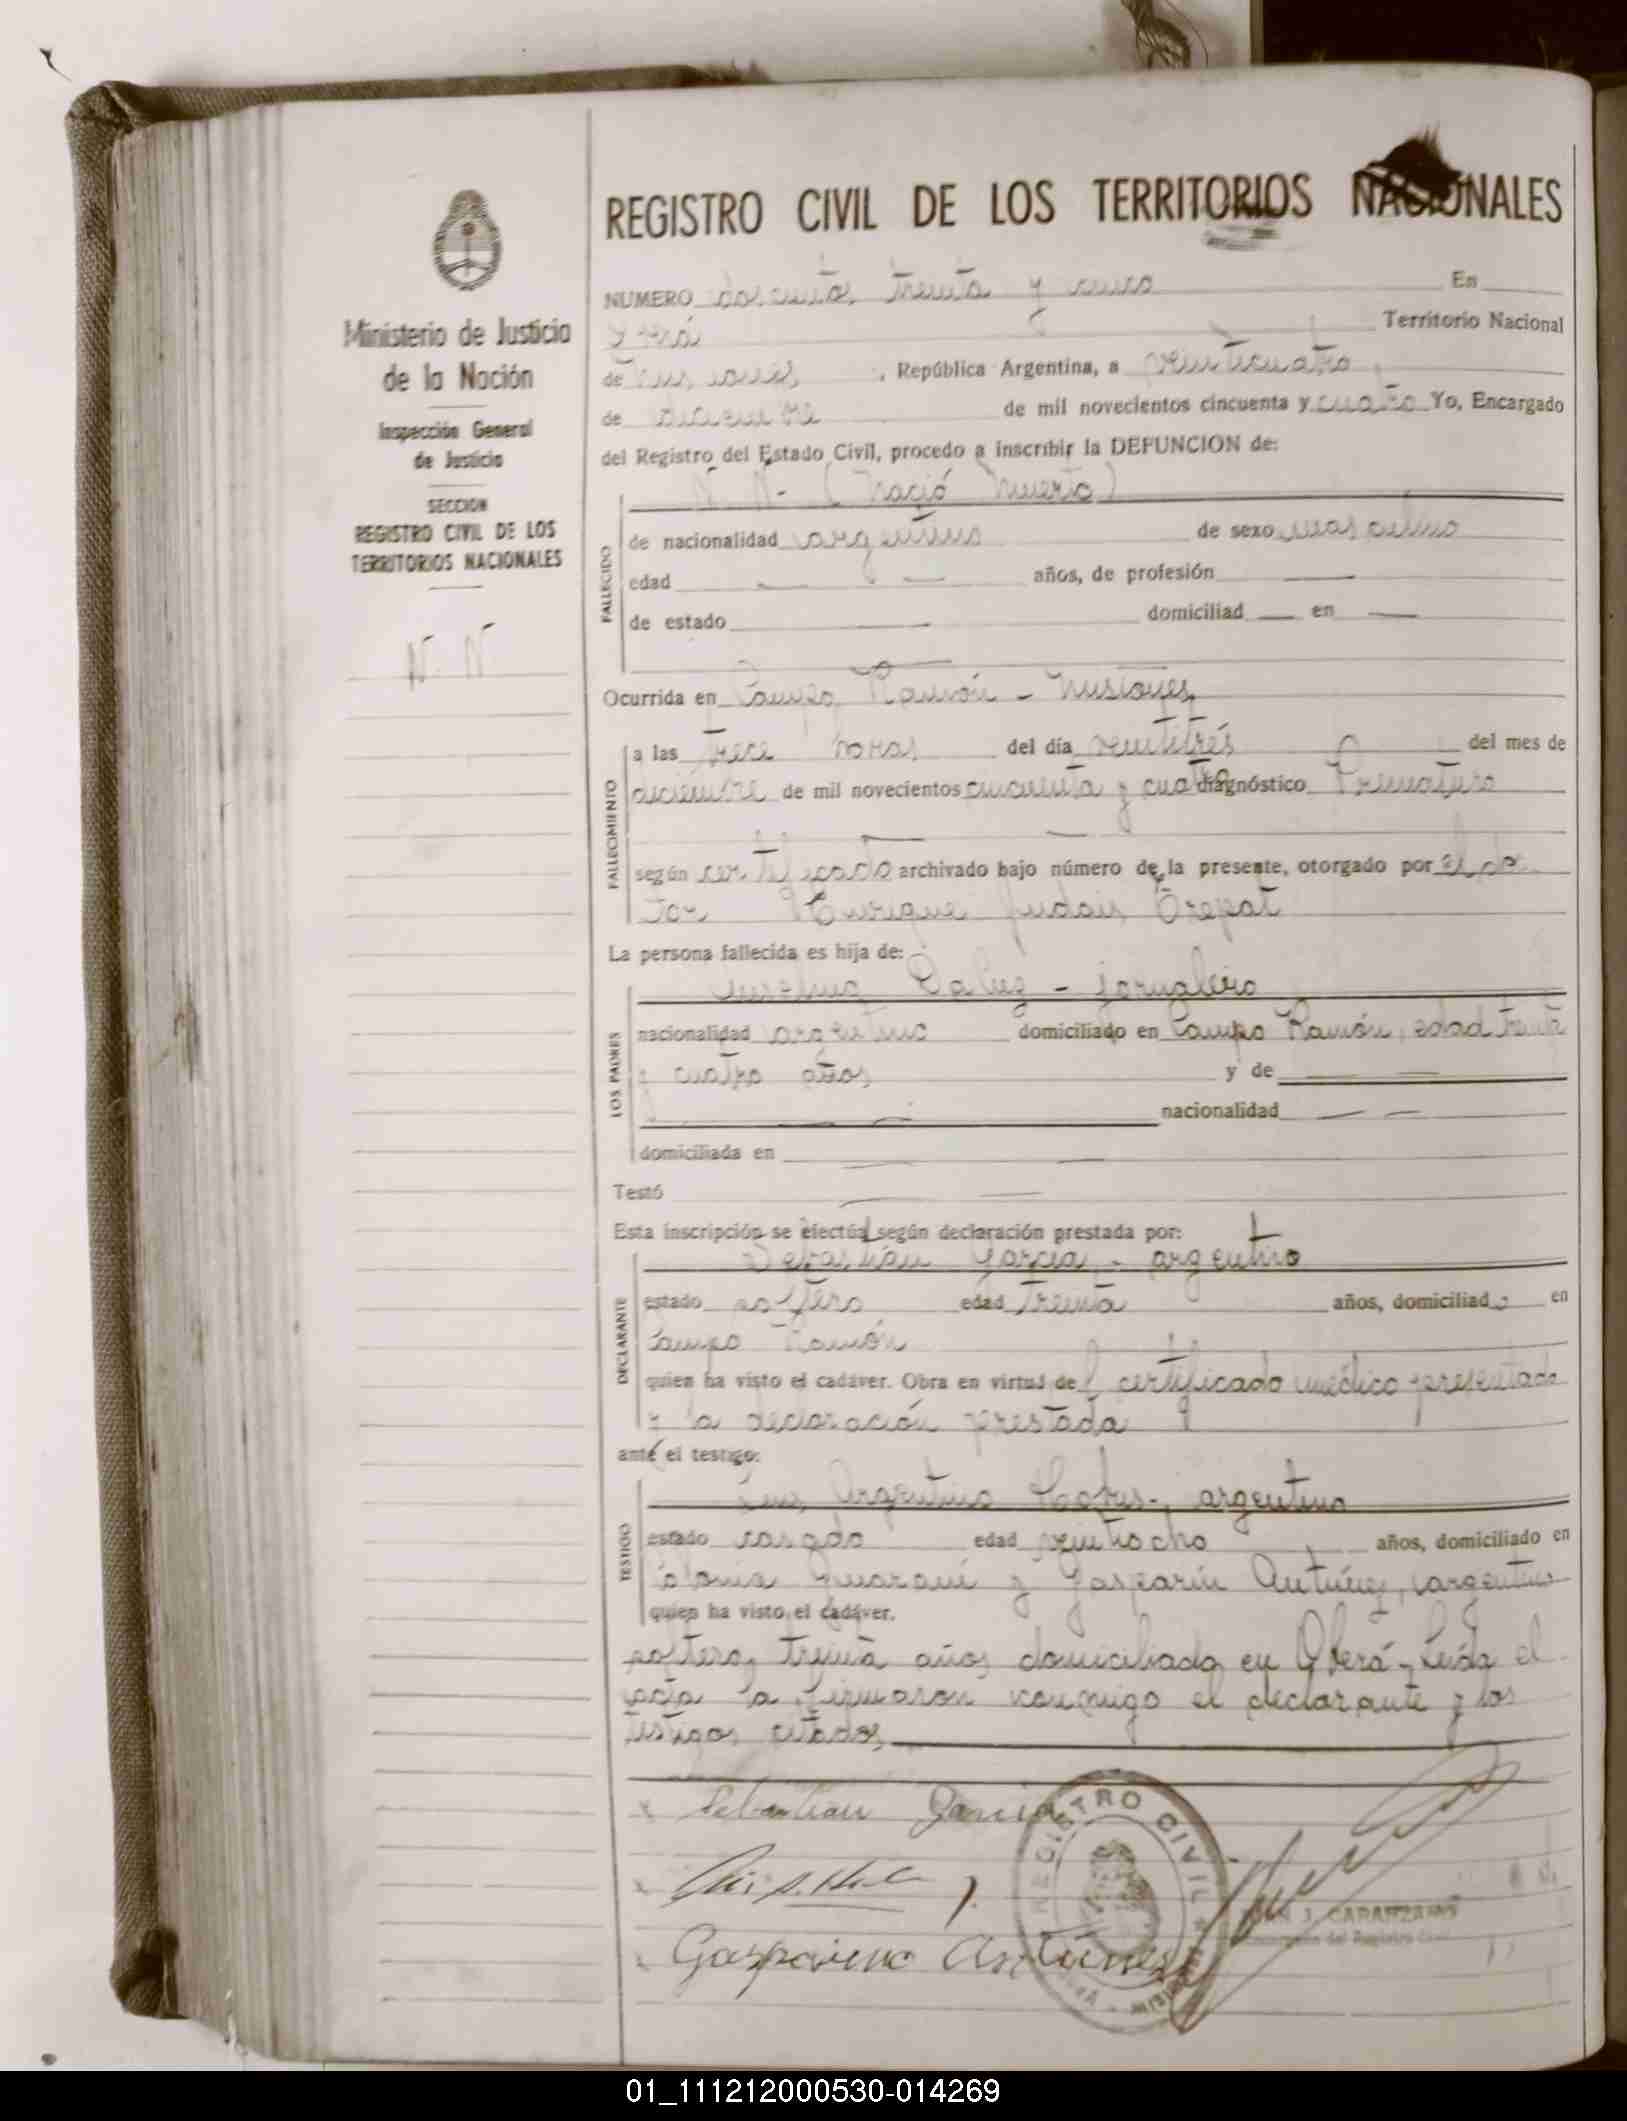 REGISTRO CIVIL DE LOS TERRITORIOS NACIONALES
Ministerio de Justicia
de la Nación
Inspección General
de Justicia
SECCION
REGISTRO CIVIL DE LOS
TERRITORIOS NACIONALES
N. N
NUMERO doscientos treinta y cinco En
Oberá Territorio Nacional
de Misiones, República Argentina, a veinticuatro
de diciembre de mil novecientos cincuenta y cuatro Yo, Encargado
del Registro del Estado Civil, procedo a inscribir la DEFUNCION de:
N. N- (Nació Muerto)
FALLECIDO
de nacionalidad argentino de sexo masculino
edad — — años, de profesión —
de estado — domiciliad — en —
Ocurrida en Campo Ramón - Misiones
FALLECIMIENTO
a las trece horas del día veintitrés del mes de
diciembre de mil novecientos cincuenta y cuatro diagnóstico Prematuro
según certificado archivado bajo número de la presente, otorgado por el doc
tor Enrique Trepat
La persona fallecida es hija de:
LOS PADRES
- jornalero
nacionalidad argentino domiciliado en Campo Ramón, edad treinta
y cuatro años y de — —
— — nacionalidad — —
domiciliada en — —
Testó — —
Esta inscripción se efectúa según declaración prestada por:
DECLARANTE
Sebastián García - argentino
estado soltero edad treinta años, domiciliado en
Campo Ramón
quien ha visto el cadáver. Obra en virtud del certificado médico presentado
y la declaración prestada
ante el testigo:
TESTIGO
Luis Argentino - argentino
estado casado edad veintiocho años, domiciliado en
Colonia Guaraní y Gasparín Antúnez, argentino
quien ha visto el cadáver.
soltero, treinta años domiciliado en Oberá - Leída el
acta la firmaron conmigo el declarante y los
testigos citados
x Sebastian Garcia
x
x Gasparino Antunes
REGISTRO CIVIL
J. CARANZANO
Encargado del Registro Civil
01_111212000530-014269